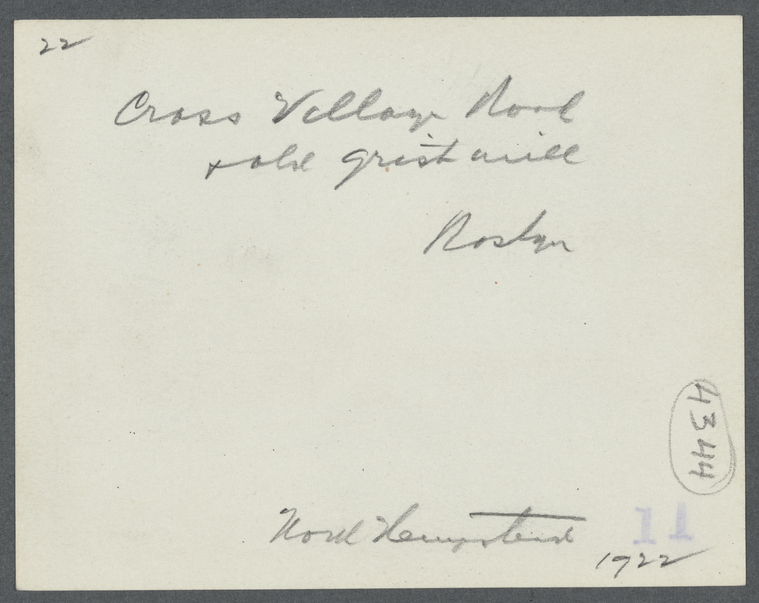 22
Cross Village Road
& old grist mill
Roslyn
4344
North Hempstead
11
1922